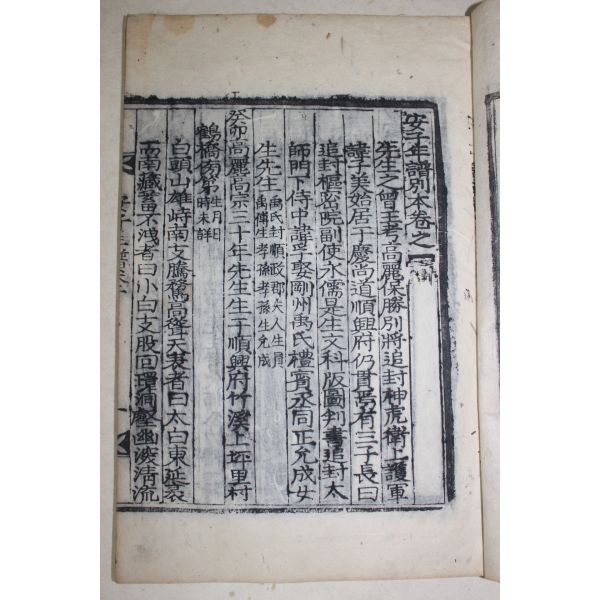 安子年譜別本卷之一
先生之曾王考高麗保勝別將追封神虎衛上護軍
諱子美始居于慶尚道順興府仍貫焉有三子長曰
追封樞密院副使永儒是生文科版圖判書追封太
師門下侍中諱孚娶剛州禹氏禮賓丞同正允成女
生先生禹氏封順政郡夫人生員
禹傳生孝孫孝孫生允成
癸卯高麗高宗三十年先生生于順興府竹溪上坪里村
鶴橋 第生月日
時未詳
白頭山雄峙南支騰騖高聳天表者曰太白東延袤
而南藏蓄不洩者曰小白支股回環洞壑幽深清流